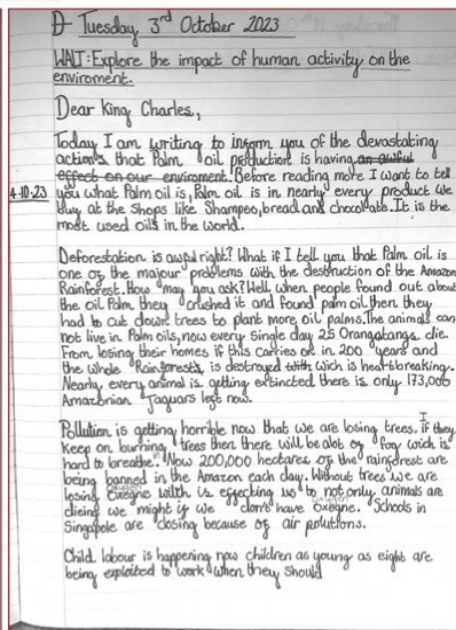 D- Tuesday 3rd October 2023
WALT: Explore the impact of human activity on the
enviroment.
Dear King Charles,
Today I am writing to inform you of the devastating
actions that Palm oil production is having an awful
effect on our enviroment. Before reading more I want to tell
4.10.23 you what Palm oil is, Palm oil is in nearly every product we
buy at the shops like Shampoo, bread and chocolate. It is the
most used oils in the world.
Deforestation is awful right? What if I tell you that Palm oil is
one of the majour problems with the destruction of the Amazon
Rainforest. How may you ask? Well when people found out about
the oil Palm they crushed it and found palm oil then they
had to cut down trees to plant more oil palms. The animals can
not live in Palm oils, now every single day 25 Orangatangs die.
From losing their homes if this carries on in 200 years and
the whole Rainforests is destroyed with wich is heartbreaking.
Nearly every animal is getting extincted there is only 173,000
Amazonian Jaguars left now.
Pollution is getting horrible now that we are losing trees. If they
keep on burning trees then there will be alot of fog wich is
hard to breathe. Now 200,000 hectares of the rainforest are
being banned in the Amazon each day. Without trees we are
losing Oxegne wilth is effecting us to not only animals are
dieing we might if we don't have oxegne. Schools in
Singapole are closing because of air polutions.
Child labour is happening now children as young as eight are
being exploited to work when they should